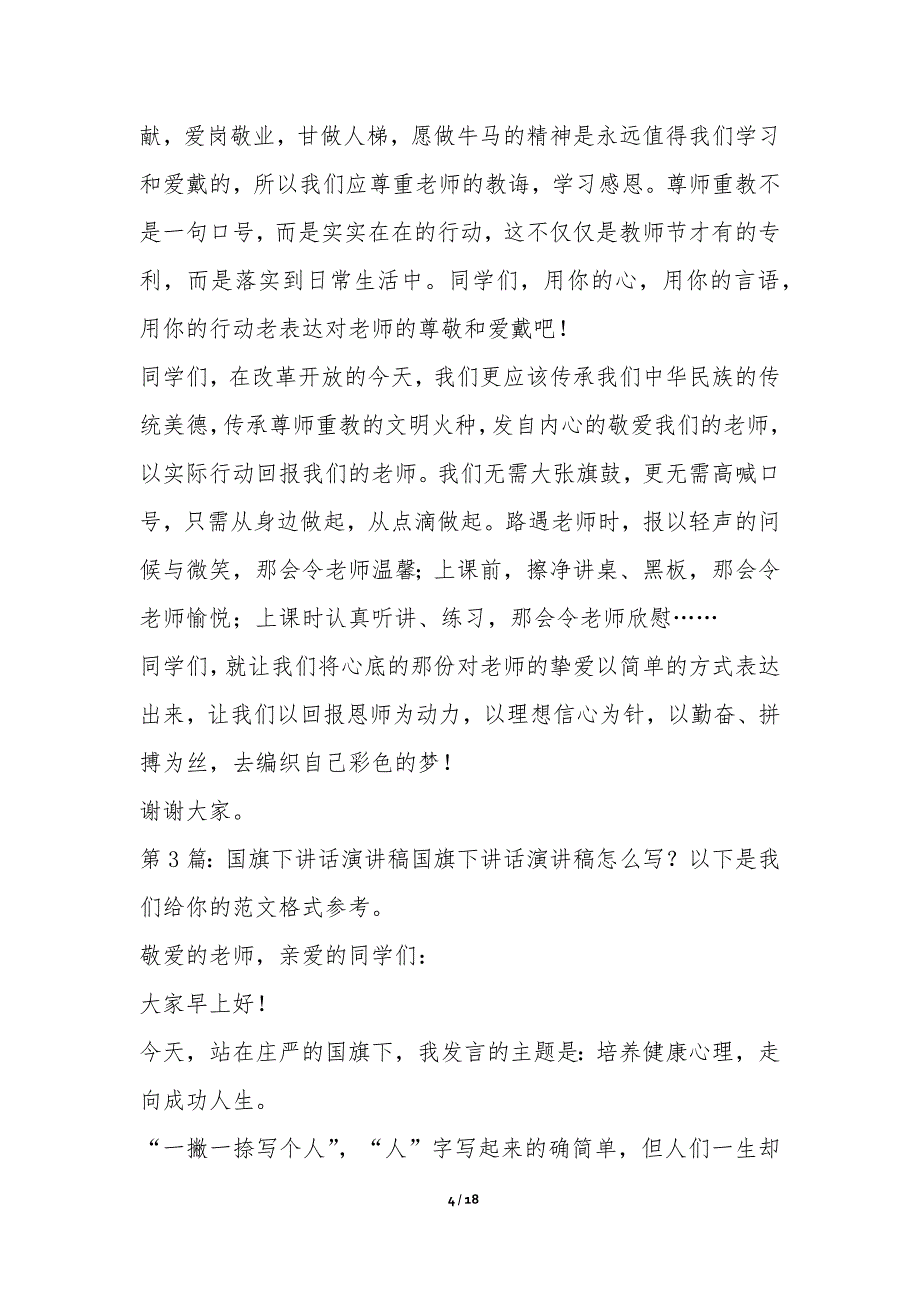 献，爱岗敬业，甘做人梯，愿做牛马的精神是永远值得我们学习
和爱戴的，所以我们应尊重老师的教诲，学习感恩。尊师重教不
是一句口号，而是实实在在的行动，这不仅仅是教师节才有的专
利，而是落实到日常生活中。同学们，用你的心，用你的言语，
用你的行动老表达对老师的尊敬和爱戴吧！
同学们，在改革开放的今天，我们更应该传承我们中华民族的传
统美德，传承尊师重教的文明火种，发自内心的敬爱我们的老师，
以实际行动回报我们的老师。我们无需大张旗鼓，更无需高喊口
号，只需从身边做起，从点滴做起。路遇老师时，报以轻声的问
候与微笑，那会令老师温馨；上课前，擦净讲桌、黑板，那会令
老师愉悦；上课时认真听讲、练习，那会令老师欣慰……
同学们，就让我们将心底的那份对老师的挚爱以简单的方式表达
出来，让我们以回报恩师为动力，以理想信心为针，以勤奋、拼
搏为丝，去编织自己彩色的梦！
谢谢大家。
第 3 篇：国旗下讲话演讲稿国旗下讲话演讲稿怎么写？以下是我
们给你的范文格式参考。
敬爱的老师，亲爱的同学们：
大家早上好！
今天，站在庄严的国旗下，我发言的主题是：培养健康心理，走
向成功人生。
“一撇一捺写个人”，“人”字写起来的确简单，但人们一生却
4 / 18